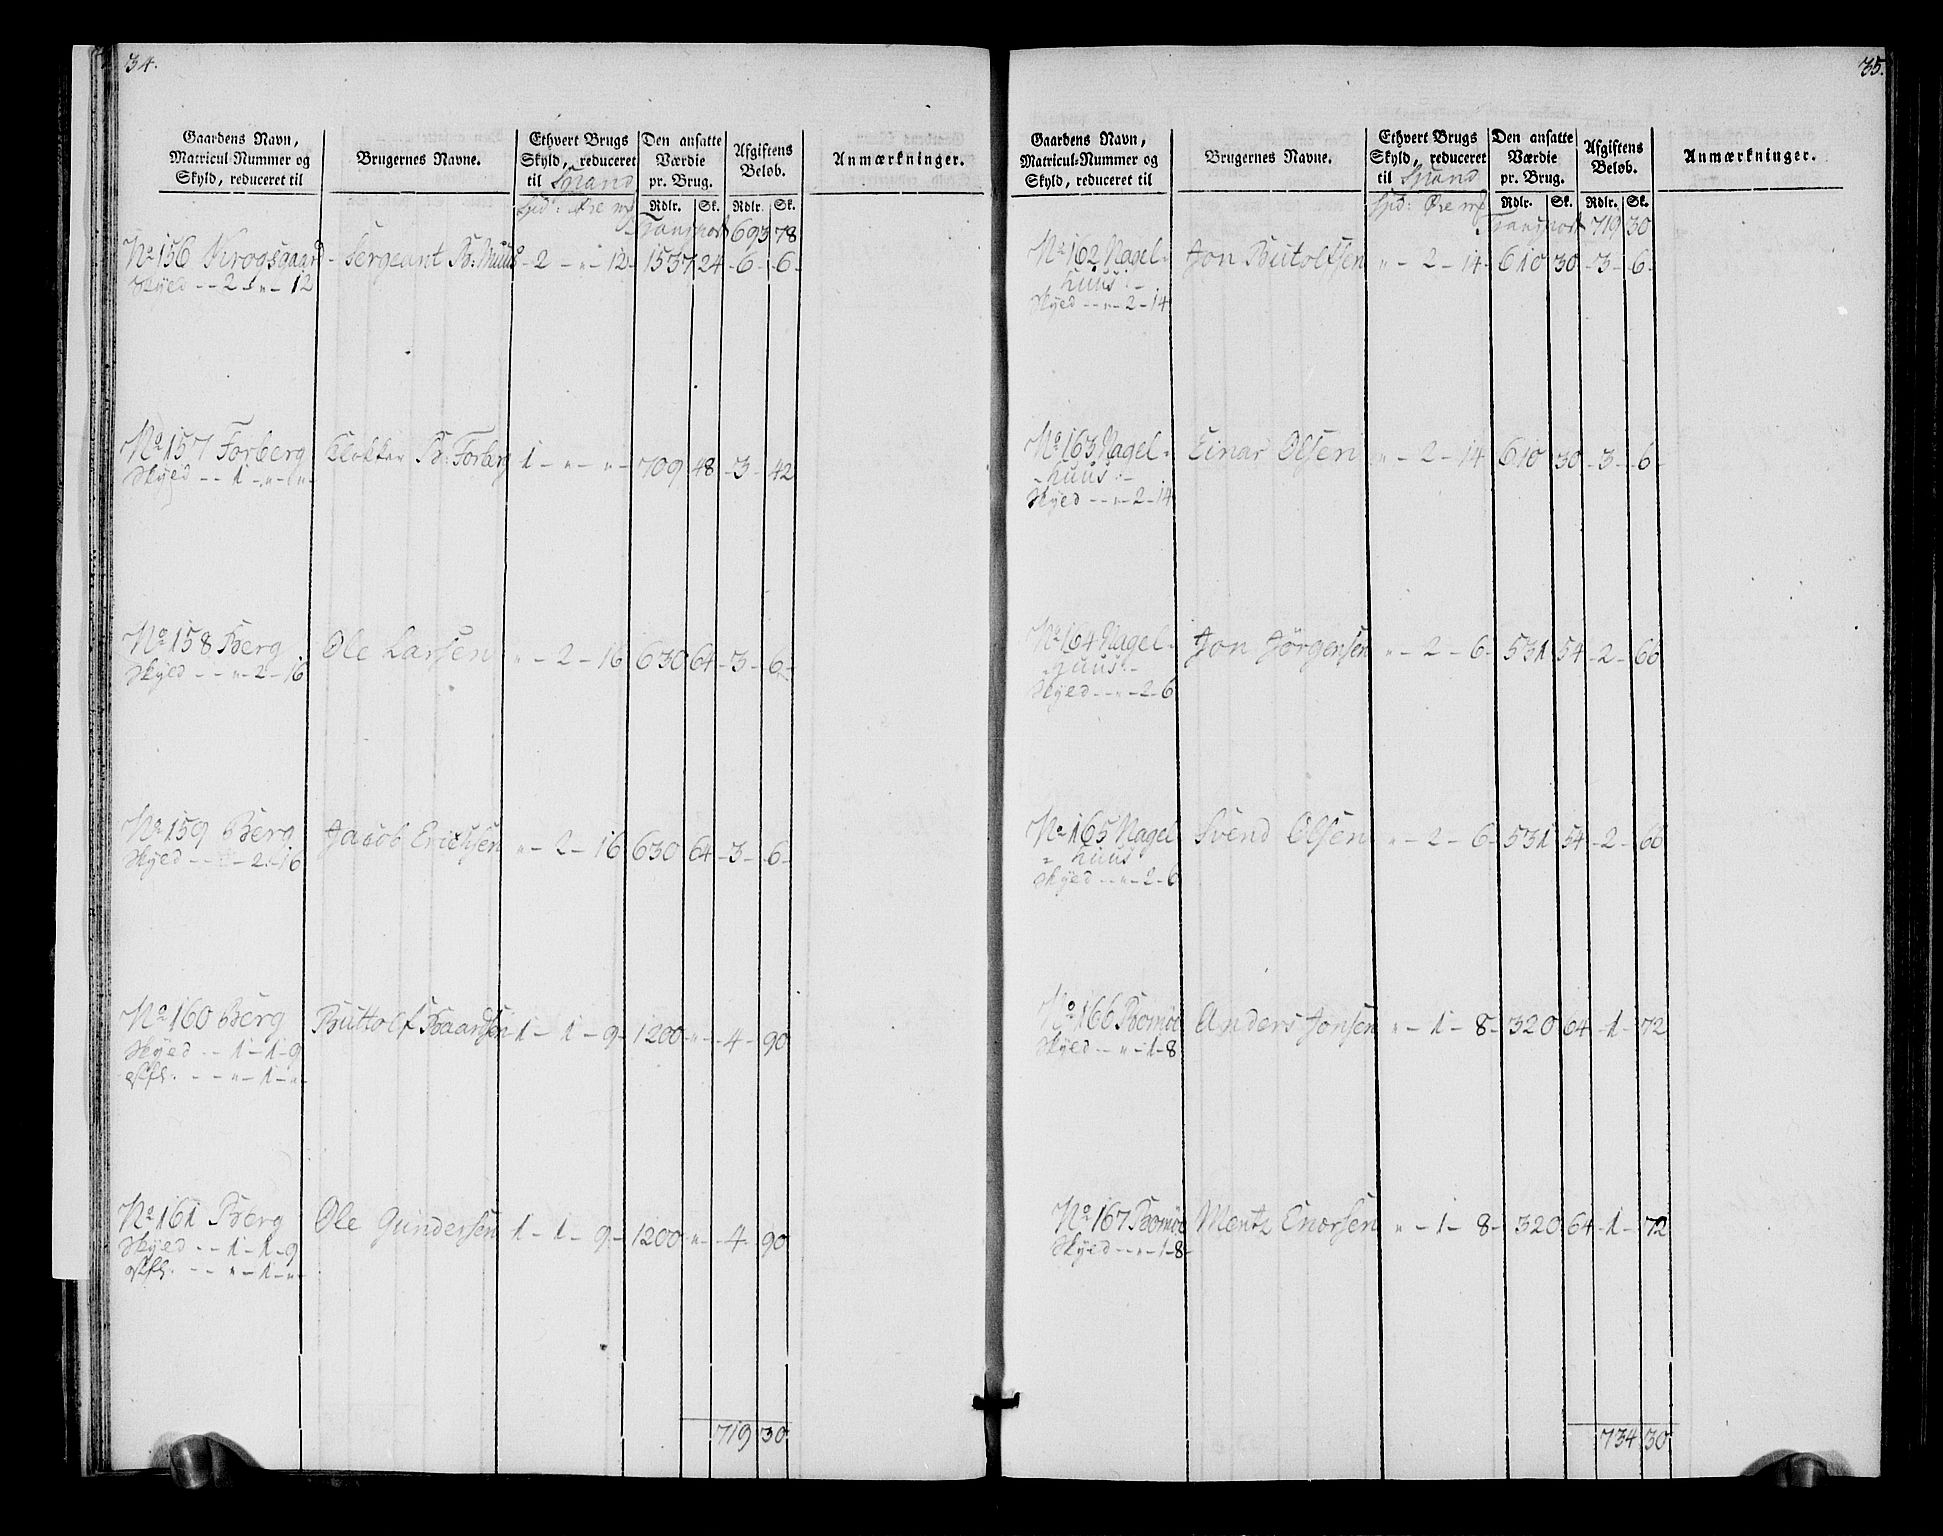 34.
Gaardens Navn, Matricul-Nummer og Skyld, reduceret til
Brugernes Navne.
Ethvert Brugs Skyld, reduceret til Spand
Den ansatte Værdie pr. Brug.
Afgiftens Beløb.
Anmærkninger.
Spd: Øre mk
Rdlr. Sk. Rdlr. Sk.
Transport 693 78
No 156 Krogsgaard - Sergeant B: Muus - 2 - " - 12 - 1537 24 - 6 - 6 -
Skyld - - 2 - " - 12
No 157 Forberg Klokker B: Forberg 1 - " - " - 709 48 - 3 - 42
Skyld - - 1 - " - " -
No 158 Berg Ole Larsen " - 2 - 16 630 64 - 3 - 6 -
Skyld - - " - 2 - 16
No 159 Berg Jacob Erichsen " - 2 - 16 630 64 - 3 - 6 -
Skyld - - " - 2 - 16
No 160 Berg Buttolf Baardsen 1 - 1 - 9 - 1200 - " - - 4 - 90
Skyld - - 1 - 1 - 9
- - " - 1 - " -
No 161 Berg Ole Gundersen 1 - 1 - 9 - 1200 - " - - 4 - 90
Skyld - - 1 - 1 - 9
- - " - 1 - " -
719 30
35.
Gaardens Navn, Matricul-Nummer og Skyld, reduceret til
Brugernes Navne.
Ethvert Brugs Skyld, reduceret til Spand
Den ansatte Værdie pr. Brug.
Afgiftens Beløb.
Anmærkninger.
Spd: Øre mk
Rdlr. Sk. Rdlr. Sk.
Transport 719 30
No 162 Nagel- Jon Butolfsen " - 2 - 14 - 610 30 - 3 - 6 -
huus
Skyld - - " - 2 - 14
No 163 Nagel- Einar Olsen " - 2 - 14 610 30 - 3 - 6 -
huus
Skyld - - " - 2 - 14
No 164 Nagel- Jon Jörgensen " - 2 - 6 - 531 54 - 2 - 66
huus
Skyld - - " - 2 - 6
No 165 Nagel Svend Olsen " - 2 - 6 - 531 54 - 2 - 66
huus
Skyld - - " - 2 - 6
No 166 Bomöe Anders Jonsen " - 1 - 8 - 320 64 - 1 - 72
Skyld - - " - 1 - 8
No 167 Bomöe Mentz Enorsen " - 1 - 8 - 320 64 - 1 - 72
Skyld - - " - 1 - 8 -
734 30